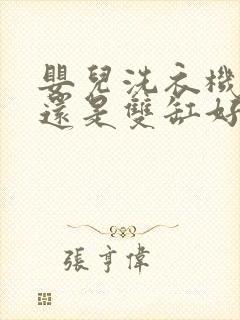 嬰兒洗衣機
還是雙缸好
張亨偉